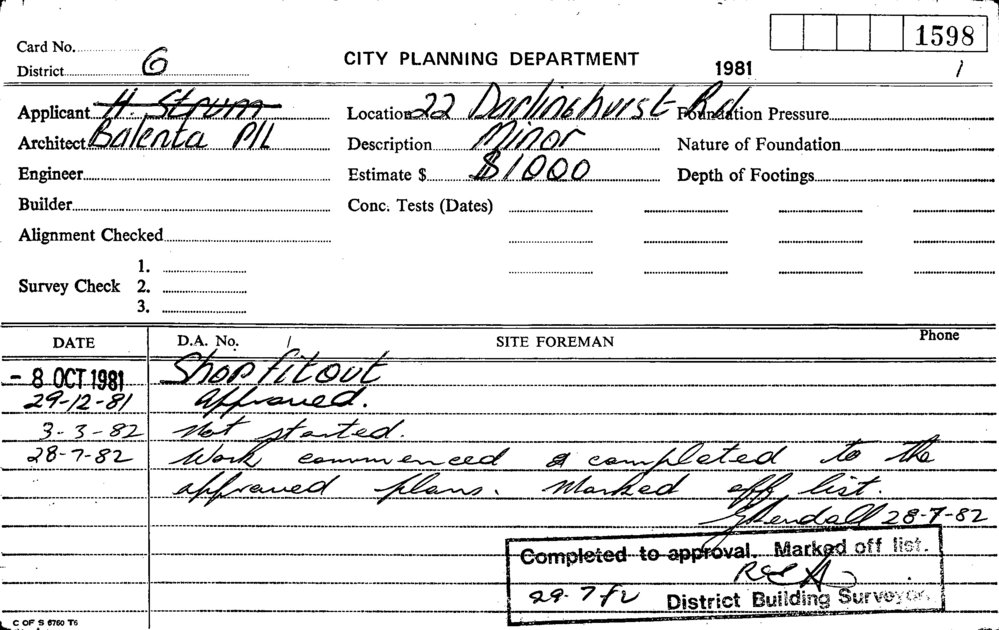 1598
Card No.
District G
CITY PLANNING DEPARTMENT
1981 /
Applicant H. Strum
Location 22 Darlinghurst Rd
Foundation Pressure
Architect Balenta P/L
Description Minor
Nature of Foundation
Engineer
Estimate $ $1000
Depth of Footings
Builder
Conc. Tests (Dates)
Alignment Checked
Survey Check
1.
2.
3.
DATE D.A. No. / SITE FOREMAN Phone
- 8 OCT 1981 Shop fitout
29-12-81 approved.
3-3-82 Not started.
28-7-82 Work commenced & completed to the
approved plans. Marked off list.
28-7-82
Completed to approval. Marked off list.
29.7.82 District Building Surveyor.
C OF S 6760 T6